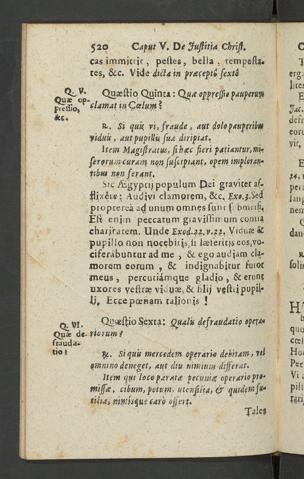 520 Caput V. De Justitia Christ.
cas immittit, pestes, bella, tempesta-
tes, &c. Vide dicta in præcepto sexto
Q. V.
Quæ op-
pressio,
&c.
Quæstio Quinta: Quæ oppressio pauperum
clamat in Cœlum?
R. Si quis vi, fraude, aut dolo pauperibus
viduis, aut pupillis sua diripiat.
Item Magistratus, si hæc fieri patiantur, mi-
serorum curam non suscipiant, opem imploran-
tibus non ferant.
Sic Ægyptij populum Dei graviter af-
flixêre: Audivi clamorem, &c. Exo. 3. Sed
propterea ad unum omnes sunt submersi.
Est enim peccatum gravissimum contra
charitatem. Unde Exod. 22. v. 22. Viduæ &
pupillo non nocebitis, si læseritis eos, vo-
ciferabuntur ad me, & ego audiam cla-
morem eorum, & indignabitur furor
meus, percutiámque gladio, & erunt
uxores vestræ viduæ, & filij vestri pupil-
li, Ecce pœnam talionis!
Q. VI.
Quæ de-
frauda-
tio?
Quæstio Sexta: Qualis defraudatio opera-
riorum?
R. Si quis mercedem operario debitam, vel
omnino deneget, aut diu nimium differat.
Item qui loco paratæ pecuniæ operario pro-
missæ, cibum, potum, utensilia, & quidem fu-
tilia, nimisque carò offert.
Tales